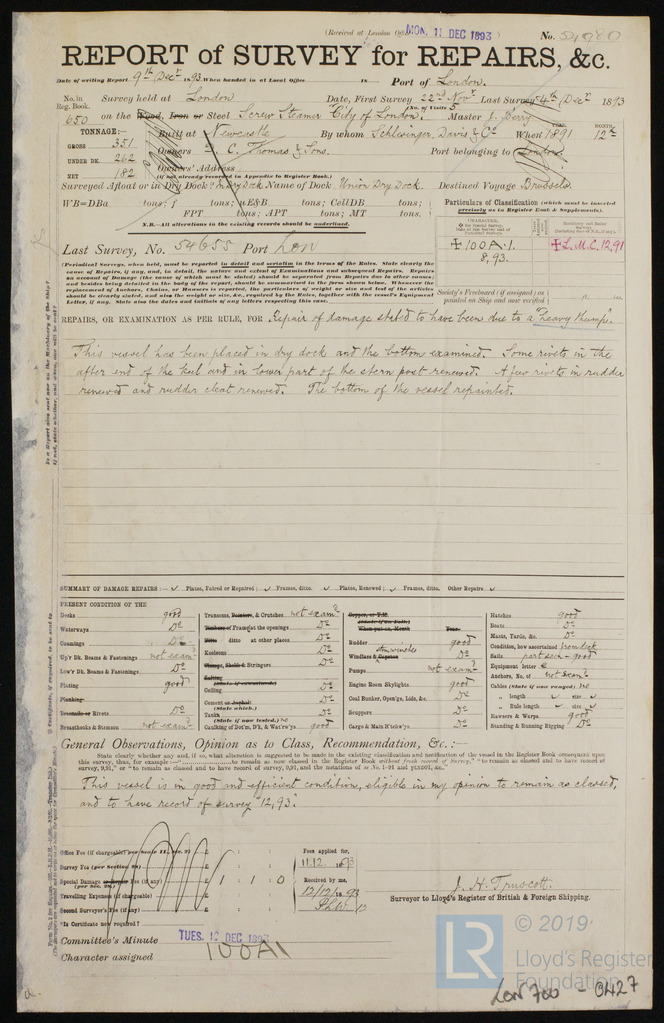 (Received at London Office MON. 11 DEC 1893)
No.
REPORT of SURVEY for REPAIRS, &c.
Date of writing Report 9th Decr 1893. When handed in at Local Office 18 Port of London.
No. in Reg. Book. 650 Survey held at London Date, First Survey 22nd Novr Last Survey 4th Decr 1893
(No. of Visits 5)
on the Wood, Iron or Steel Screw Steamer City of London. Master J. Berry
TONNAGE:— Built at Newcastle By whom Schlesinger, Davis & Co When 1891 MONTH. 12th
GROSS 351
UNDER DK. 262
NET 182
Owners T. C. Thomas & Sons. Port belonging to London
Owners' Address
(if not already recorded in Appendix to Register Book.)
Surveyed Afloat or in Dry Dock? In Dry Dock Name of Dock Union Dry Dock. Destined Voyage Brussels
WB=DBa tons; f tons; uE&B tons; CellDB tons;
FPT tons; APT tons; MT tons.
N.B.—All alterations in the existing records should be underlined.
Particulars of Classification (which must be inserted precisely as in Register Book & Supplements).
CHARACTER.
✠ 100A.1.
8,93.
✠ L.M.C. 12,91
Last Survey, No. 54655 Port Lon
(Periodical Surveys, when held, must be reported in detail and seriatim in the terms of the Rules. State clearly the
cause of Repairs, if any, and, in detail, the nature and extent of Examinations and subsequent Repairs. Repairs
on account of Damage (the cause of which must be stated) should be separated from Repairs due to other causes;
and besides being detailed in the body of the report, should be summarised in the form shown below. Whenever the
replacement of Anchors, Chains, or Hawsers is reported, the particulars of weight or size and test of the articles
should be clearly stated, and also the weight or size, &c., required by the Rules, together with the vessel's Equipment
Letter, if any. State also the dates and initials of any letters respecting this case.
Society's Freeboard (if assigned) as painted on Ship and now verified
REPAIRS, OR EXAMINATION AS PER RULE, FOR Repair of damage stated to have been due to a "heavy thump".
This vessel has been placed in dry dock and the bottom examined. Some rivets in the
after end of the keel and in lower part of the stern post renewed. A few rivets in rudder
renewed and rudder cleat renewed. The bottom of the vessel repainted.
SUMMARY OF DAMAGE REPAIRS:— ✓ Plates, Faired or Repaired; ✓ Frames, ditto. ✓ Plates, Renewed; ✓ Frames, ditto. Other Repairs ✓
PRESENT CONDITION OF THE
Decks good
Waterways Do
Coamings Do
Up'r Dk. Beams & Fastenings not examd
Low'r Dk. Beams & Fastenings Do
Plating good
Planking
Treenails or Rivets Do
Breasthooks & Stemson not examd
Transoms, Pointers, & Crutches not examd
Timbers of Frame at the openings Do
Ditto ditto at other places Do
Keelsons Do
Clamps, Shelfs & Stringers Do
Salting
(State if examined)
Ceiling Do
Cement or Asphal: Do
(State which.)
Tanks Do
(State if now tested.) no
Caulking of Bot'm, D'k, & Wat'rw'ys good
Rudder good
Windlass & Capstan steam winches Do
Pumps not examd
Engine Room Skylights good
Coal Bunker, Open'gs, Lids, &c. Do
Scuppers Do
Cargo & Main H'tchw'ys Do
Hatches good
Boats Do
Masts, Yards, &c. Do
Condition, how ascertained from deck
Sails part seen - good
Equipment letter
Anchors, No. of not examd
Cables (State if now ranged) no
" length size
" Rule length size
Hawsers & Warps good
Standing & Running Rigging Do
General Observations, Opinion as to Class, Recommendation, &c.:—
(State clearly whether any and, if so, what alteration is suggested to be made in the existing classification and notification of the vessel in the Register Book consequent upon
This vessel is in good and efficient condition, eligible in my opinion to remain as classed,
and to have record of survey "12,93".
Office Fee (if chargeable) per Scale II., Sec. 2) £
Survey Fee (per Section 28) £
Special Damage or Repair Fee (if any) £ 1 1 0
(per Sec. 28.)
Travelling Expenses (if chargeable) £
Second Surveyor's Fee (if any) £
*Is Certificate now required?
Fees applied for, 11.12. 1893
Received by me, 12/12/1893
J. H. Truscott.
Surveyor to Lloyd's Register of British & Foreign Shipping.
Committee's Minute TUES. 12 DEC 1893
Character assigned 100A1
LR
© 2019
Lloyd's Register
Foundation
LON 700 - 0427